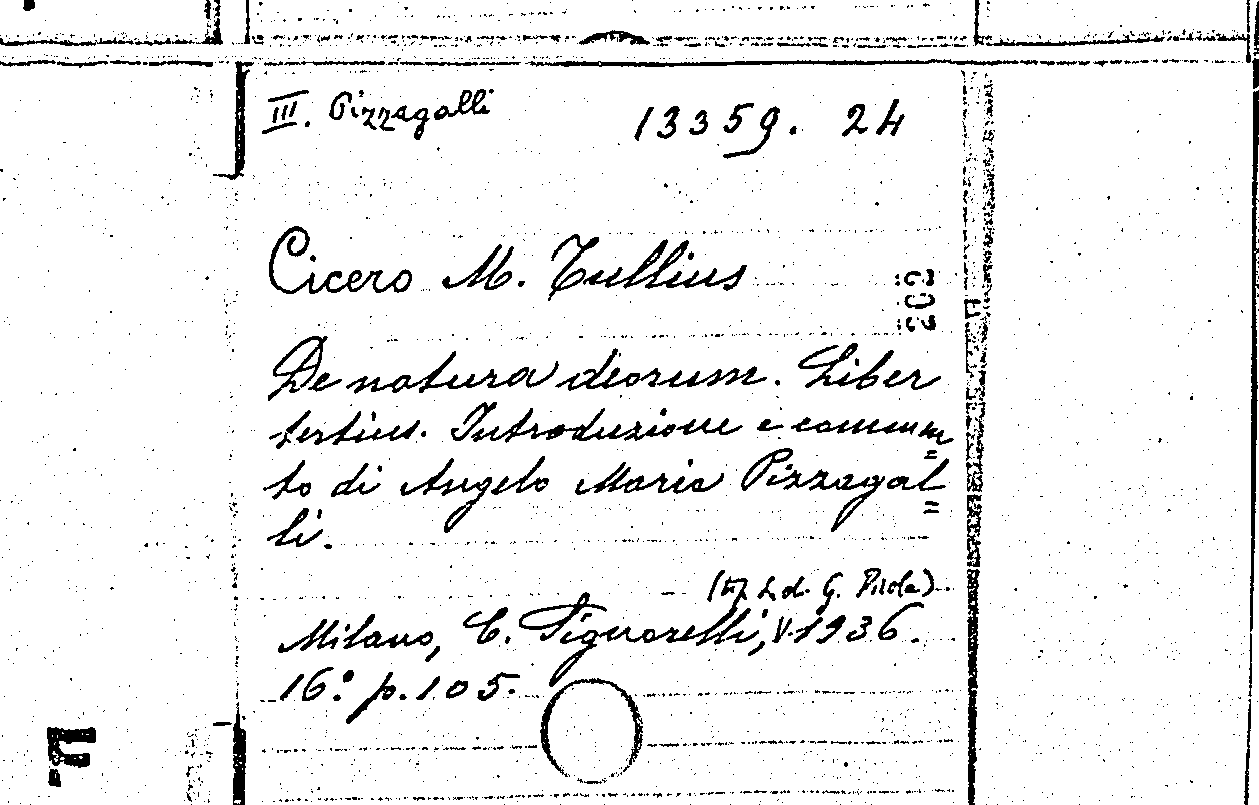 III. Pizzagalli
13359. 24
Cicero M. Tullius
De natura deorum. Liber
tertius. Introduzione e commen=
to di Angelo Maria Pizzagal=
li.
G. Pirola)
Milano, C. Signorelli, V. 1936.
16.° p. 105.